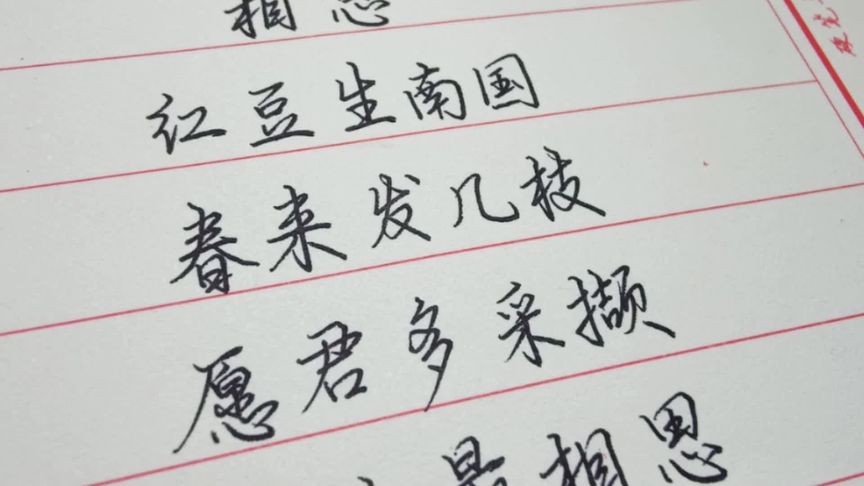 相思
红豆生南国
春来发几枝
愿君多采撷
最相思